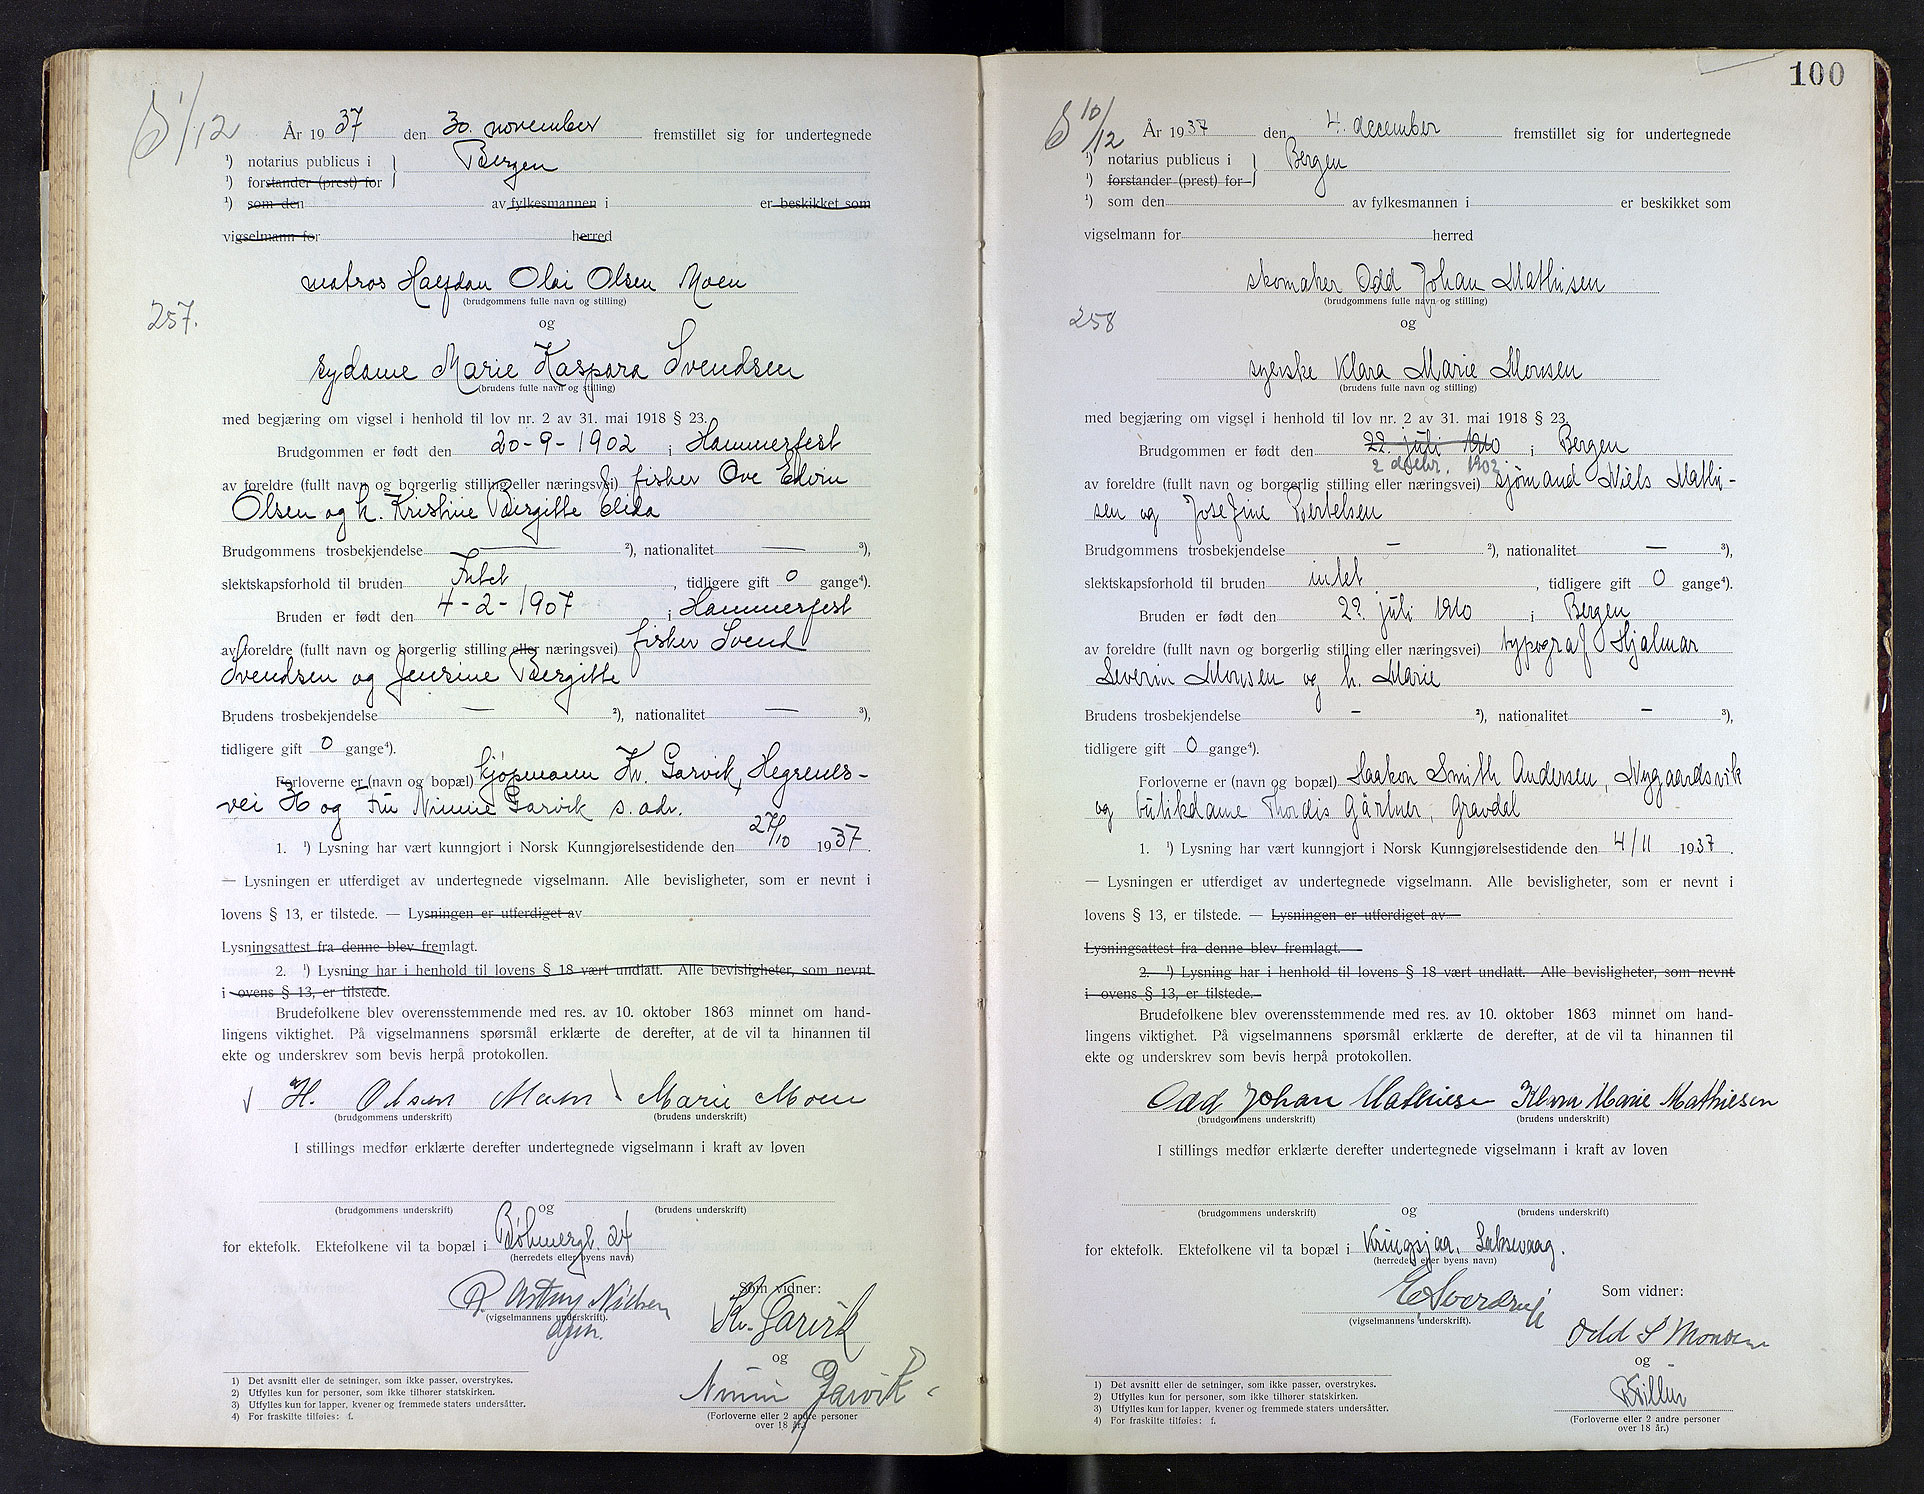 S 1/12
År 1937 den 30. november fremstillet sig for undertegnede
¹) notarius publicus i } Bergen
¹) forstander (prest) for
¹) som den av fylkesmannen i er beskikket som
vigselmann for herred
matros Halfdan Olai Olsen Moen
(brudgommens fulle navn og stilling)
257.
og
sydame Marie Kaspara Svendsen
(brudens fulle navn og stilling)
med begjæring om vigsel i henhold til lov nr. 2 av 31. mai 1918 § 23.
Brudgommen er født den 20-9-1902 i Hammerfest
av foreldre (fullt navn og borgerlig stilling eller næringsvei) fisker Ove Edvin
Olsen og h. Kristine Birgitte Elida
Brudgommens trosbekjendelse — ²), nationalitet — ³),
slektskapsforhold til bruden Intet, tidligere gift 0 gange⁴).
Bruden er født den 4-2-1907 i Hammerfest
av foreldre (fullt navn og borgerlig stilling eller næringsvei) fisker Svend
Svendsen og Jensine Bergitte
Brudens trosbekjendelse — ²), nationalitet — ³),
tidligere gift 0 gange⁴).
Forloverne er (navn og bopæl) kjøpmann Kr. Garvik, Hegrenes-
vei og Fru Ninnie Garvik s. adr.
1. ¹) Lysning har vært kunngjort i Norsk Kunngjørelsestidende den 27/10 1937.
— Lysningen er utferdiget av undertegnede vigselmann. Alle bevisligheter, som er nevnt i
lovens § 13, er tilstede. — Lysningen er utferdiget av
Lysningsattest fra denne blev fremlagt.
2. ¹) Lysning har i henhold til lovens § 18 vært undlatt. Alle bevisligheter, som nevnt
i ovens § 13, er tilstede.
Brudefolkene blev overensstemmende med res. av 10. oktober 1863 minnet om hand-
lingens viktighet. På vigselmannens spørsmål erklærte de derefter, at de vil ta hinannen til
ekte og underskrev som bevis herpå protokollen.
H. Olsen Moen Marie Moen
(brudgommens underskrift) (brudens underskrift)
I stillings medfør erklærte derefter undertegnede vigselmann i kraft av loven
og
(brudgommens underskrift) (brudens underskrift)
for ektefolk. Ektefolkene vil ta bopæl i Bøhmergt. 24
(herredets eller byens navn)
Som vidner:
Nielsen
(vigselmannens underskrift).
Kr. Garvik
og
Ninni Garvik
(Forloverne eller 2 andre personer
over 18 år.)
1) Det avsnitt eller de setninger, som ikke passer, overstrykes.
2) Utfylles kun for personer, som ikke tilhører statskirken.
3) Utfylles kun for lapper, kvener og fremmede staters undersåtter.
4) For fraskilte tilføies: f.
100
S 10/12
År 1937 den 4. december fremstillet sig for undertegnede
¹) notarius publicus i } Bergen
¹) forstander (prest) for
¹) som den av fylkesmannen i er beskikket som
vigselmann for herred
skomaker Odd Johan Mathisen
(brudgommens fulle navn og stilling)
258
og
syerske Klara Marie Monsen
(brudens fulle navn og stilling)
med begjæring om vigsel i henhold til lov nr. 2 av 31. mai 1918 § 23.
Brudgommen er født den 22. juli 1910 i Bergen
2 decbr. 1902
av foreldre (fullt navn og borgerlig stilling eller næringsvei) sjømand Niels Mathi-
sen og Josefine Bertelsen
Brudgommens trosbekjendelse — ²), nationalitet — ³),
slektskapsforhold til bruden intet, tidligere gift 0 gange⁴).
Bruden er født den 22. juli 1910 i Bergen
av foreldre (fullt navn og borgerlig stilling eller næringsvei) typograf Hjalmar
Severin Monsen og h. Marie
Brudens trosbekjendelse — ²), nationalitet — ³),
tidligere gift 0 gange⁴).
Forloverne er (navn og bopæl) Haakon Smith Andersen, Nygaardsvik
og butikdame Thordis Gärtner, Gravdal
1. ¹) Lysning har vært kunngjort i Norsk Kunngjørelsestidende den 4/11 1937.
— Lysningen er utferdiget av undertegnede vigselmann. Alle bevisligheter, som er nevnt i
lovens § 13, er tilstede. — Lysningen er utferdiget av
Lysningsattest fra denne blev fremlagt.
2. ¹) Lysning har i henhold til lovens § 18 vært undlatt. Alle bevisligheter, som nevnt
i ovens § 13, er tilstede.
Brudefolkene blev overensstemmende med res. av 10. oktober 1863 minnet om hand-
lingens viktighet. På vigselmannens spørsmål erklærte de derefter, at de vil ta hinannen til
ekte og underskrev som bevis herpå protokollen.
Odd Johan Mathiesen Klara Marie Mathiesen
(brudgommens underskrift) (brudens underskrift)
I stillings medfør erklærte derefter undertegnede vigselmann i kraft av loven
og
(brudgommens underskrift) (brudens underskrift)
for ektefolk. Ektefolkene vil ta bopæl i Kringsjaa, Laksevaag.
(herredets eller byens navn)
Som vidner:
E Sverdrup
(vigselmannens underskrift).
Odd S Monsen
og
(Forloverne eller 2 andre personer
over 18 år.)
1) Det avsnitt eller de setninger, som ikke passer, overstrykes.
2) Utfylles kun for personer, som ikke tilhører statskirken.
3) Utfylles kun for lapper, kvener og fremmede staters undersåtter.
4) For fraskilte tilføies: f.